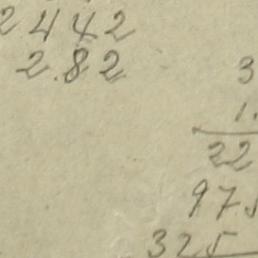 2442
2.82
3
1.
22
975
325